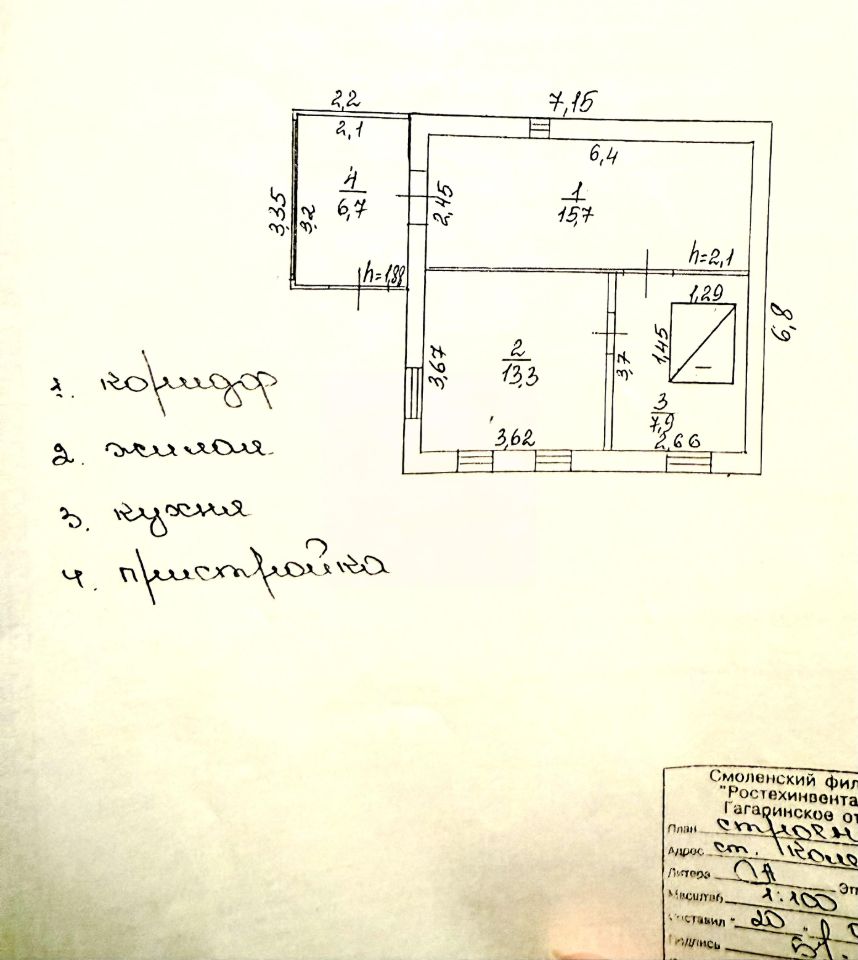 2,2
7,15
2,1
6,4
4
6,7
3,35
3,2
2,45
1
15,7
h=1,88
h=2,1
1,29
6,8
1,45
3,67
2
13,3
3,7
3
7,9
3,62
2,66
1. коридор
2. жилая
3. кухня
4. пристройка
Смоленский фил
"Ростехинвента
Гагаринское от
План строен
Адрес ст. Коле
Литера Эт
Масштаб 1:100
Составил " 20 "
Подпись